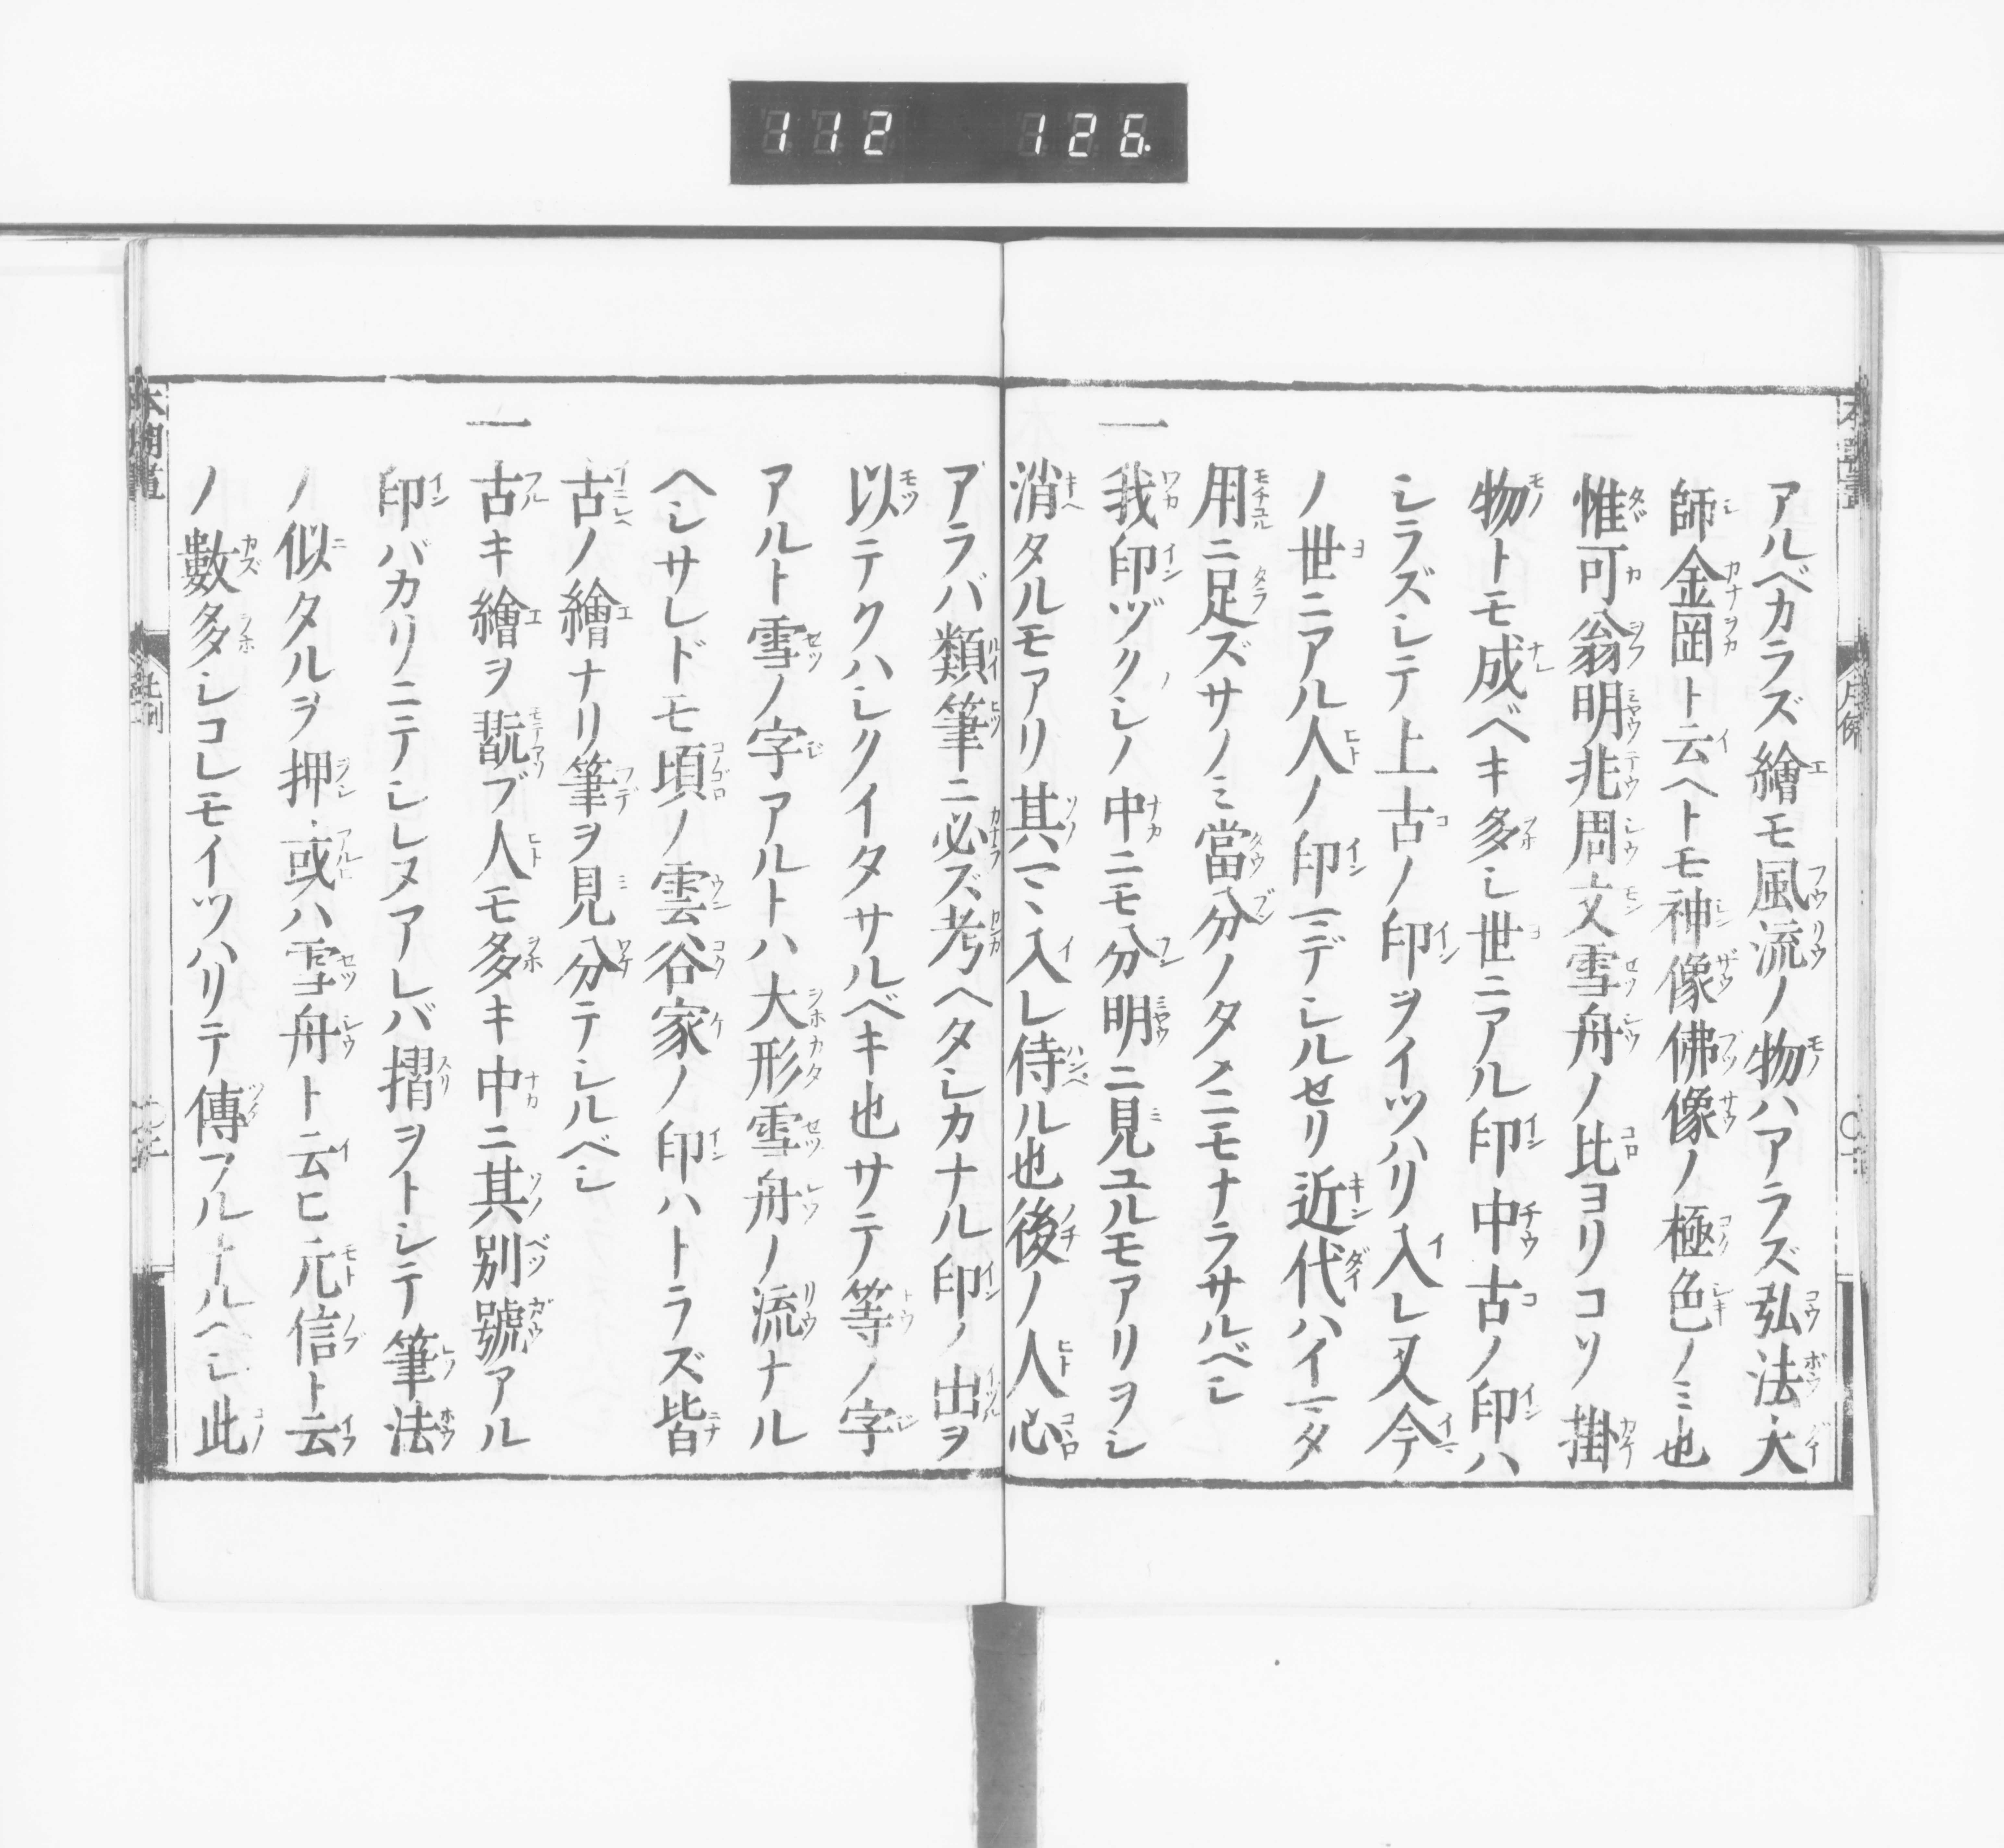 112 126.
アルベカラズ繪モ風流ノ物ハアラズ弘法大
師金岡ト云ヘトモ神像佛像ノ極色ノミ也
惟可翁明兆周文雪舟ノ比ヨリコソ掛
物トモ成ベキ多シ世ニアル印中古ノ印ハ
シラズシテ上古ノ印ヲイツハリ入レ又今
ノ世ニアル人ノ印マデシルセリ近代ハイマタ
用ニ足ズサノミ當分ノタメニモナラサルベシ
一我印ヅクシノ中ニモ分明ニ見ユルモアリヲシ
消タルモアリ其マヽ入レ侍ル也後ノ人心
アラバ類筆ニ必ズ考ヘタシカナル印ノ出ヲ
以テクハシクイタサルベキ也サテ等ノ字
アルト雪ノ字アルトハ大形雪舟ノ流ナル
ヘシサレドモ頃ノ雲谷家ノ印ハトラズ皆
古ノ繪ナリ筆ヲ見分テシルベシ
一古キ繪ヲ翫ブ人モ多キ中ニ其別號アル
印バカリニテシレヌアレバ摺ヲトシテ筆法
ノ似タルヲ押或ハ雪舟ト云ヒ元信ト云
ノ數多シコレモイツハリテ傳フルナルヘシ此